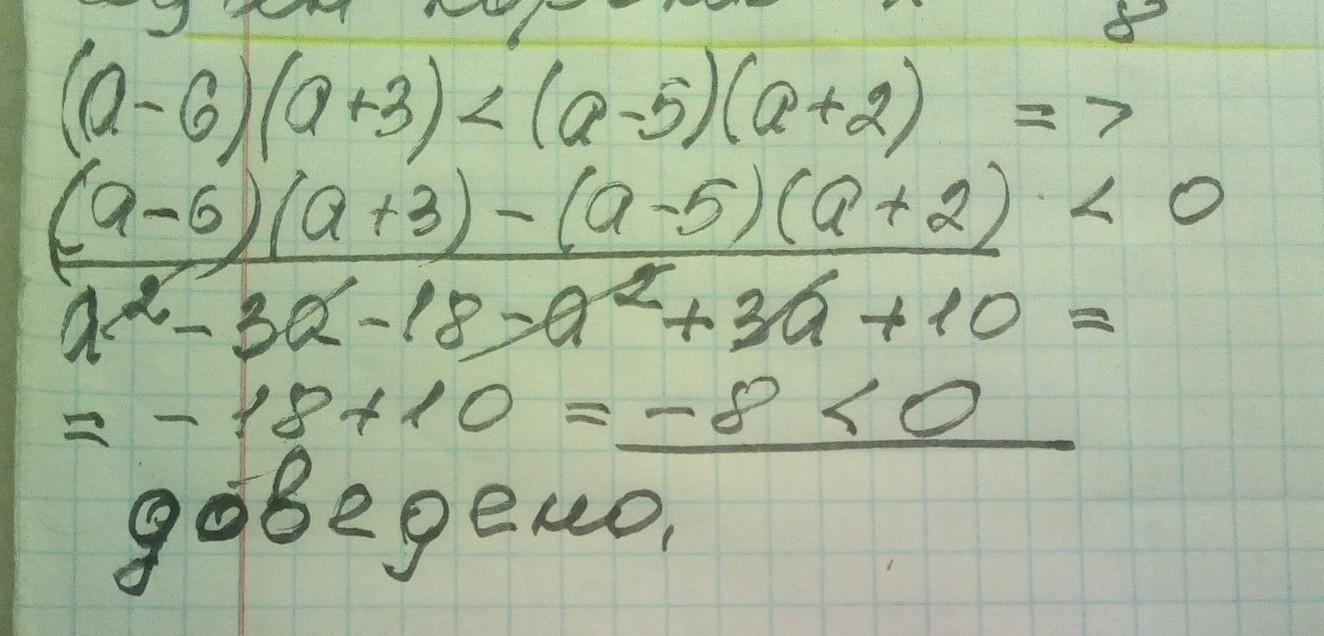 (a-6)(a+3) < (a-5)(a+2) =>
(a-6)(a+3) - (a-5)(a+2) < 0
a² - 3a - 18 - a² + 3a + 10 =
= - 18 + 10 = - 8 < 0
доведено.